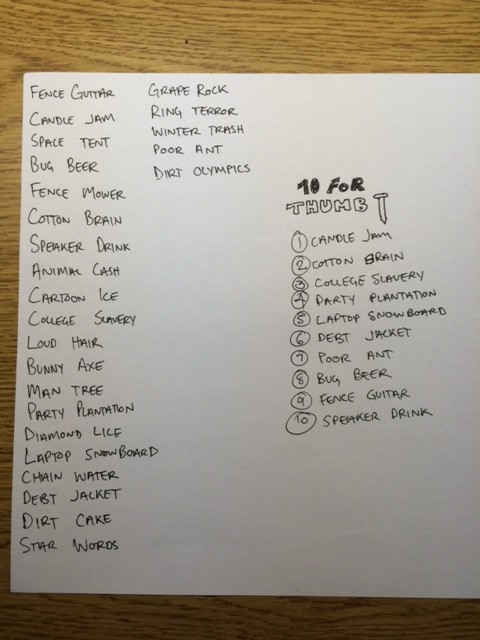 FENCE GUITAR
CANDLE JAM
SPACE TENT
BUG BEER
FENCE MOWER
COTTON BRAIN
SPEAKER DRINK
ANIMAL CASH
CARTOON ICE
COLLEGE SLAVERY
LOUD HAIR
BUNNY AXE
MAN TREE
PARTY PLANTATION
DIAMOND LICE
LAPTOP SNOWBOARD
CHAIN WATER
DEBT JACKET
DIRT CAKE
STAR WORDS
GRAPE ROCK
RING TERROR
WINTER TRASH
POOR ANT
DIRT OLYMPICS
10 FOR
THUMB
1 CANDLE JAM
2 COTTON BRAIN
3 COLLEGE SLAVERY
4 PARTY PLANTATION
5 LAPTOP SNOWBOARD
6 DEBT JACKET
7 POOR ANT
8 BUG BEER
9 FENCE GUITAR
10 SPEAKER DRINK